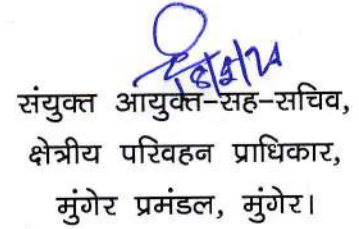 संयुक्त आयुक्त-सह-सचिव,
क्षेत्रीय परिवहन प्राधिकार,
मुंगेर प्रमंडल, मुंगेर।